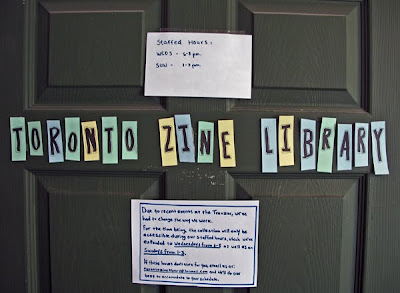 Staffed Hours:
WEDS - 6-8 pm.
SUN - 1-3 pm.
TORONTO ZINE LIBRARY
Due to recent events at the Tranzac, we've
had to change the way we work.
For the time being, the collection will only be
accessible during our staffed hours, which we've
extended to Wednesdays from 6-8 as well as on
Sundays from 1-3.
If these hours don't work for you, email us at:
and we'll do our
best to accomodate to your schedule.